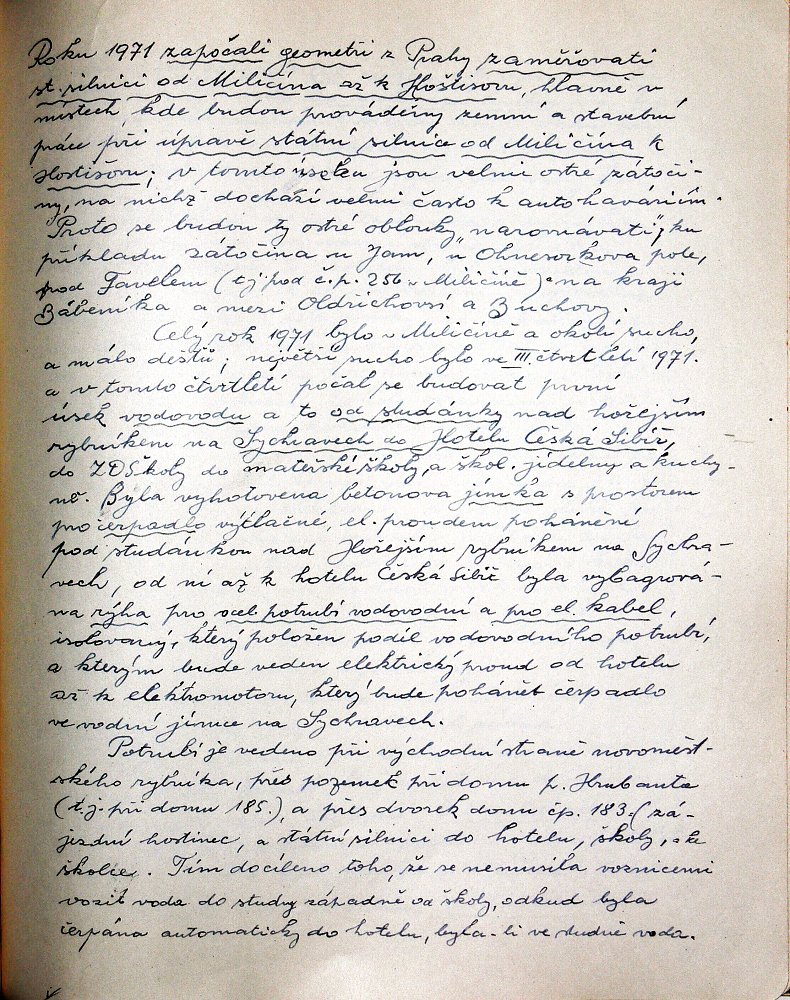 Roku 1971 započali geometři z Prahy zaměřovati
st. silnici od Miličína až k Hoštisoru, hlavně v
místech kde budou prováděny zemní a stavební
práce při úpravě státní silnice od Miličína k
Hostišoru; v tomto úseku jsou velmi ostré zátoči-
ny, na nichž dochází velmi často k autohaváriím.
Proto se budou ty ostré oblouky „narovnávati", ku
příkladu zátočina u Jam, u Ohnesorkova pole,
pod Favelem (tj. pod č.p. 256 v Miličíně) a na kraji
Bábeníka a mezi Oldřichovsí a Buchovy.
Celý rok 1971 bylo v Miličíně a okolí sucho,
a málo deštů; největší sucho bylo ve III. čtvrtletí 1971.
a v tomto čtvrtletí počal se budovat první
úsek vodovodu a to od studánky nad hořejším
rybníkem na Sychravech do Hotelu Česká Sibiř,
do ZDŠkoly do mateřské školy, a škol. jídelny a kuchy-
ně. Byla vyhotovena betonova jímka s prostorem
pro čerpadlo výtlačné, el. proudem pohánění
pod studánkou nad Hořejším rybníkem na Sychra-
vech, od ní až k hotelu Česká Sibiř byla vybagrová-
na rýha pro ocel. potrubí vodovodní a pro el. kabel,
isolovaný, který položen podél vodovodního potrubí,
a kterým bude veden elektrický proud od hotelu
až k elektromotoru, který bude pohánět čerpadlo
ve vodní jímce na Sychravech.
Potrubí je vedeno při východní straně novoměst-
ského rybníka, přes pozemek při domu p. Hrubanta
(t.j. při domu 185.), a přes dvorek domu čp. 183. (zá-
jezdní hostinec, a státní silnici do hotelu, školy, a ke
školce. Tím docíleno toho, že se nemusila voznicemi
vozit voda do studny západně od školy, odkud byla
čerpána automaticky do hotelu, byla-li ve studně voda.